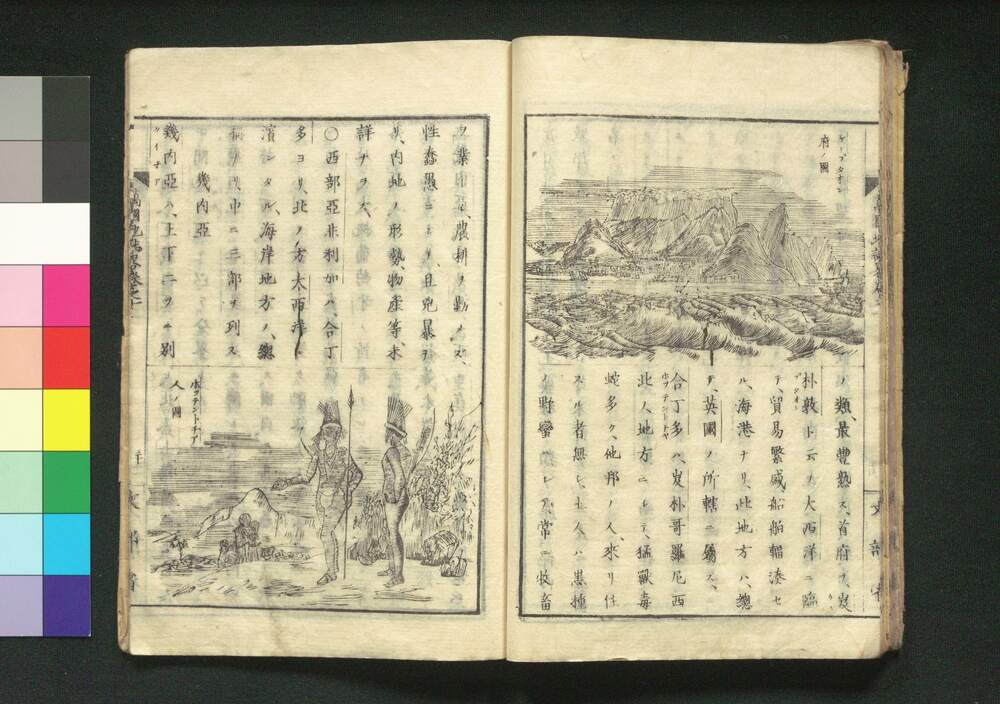 ケープタオン
府ノ圖
ノ類、最豊熟ス、首府ヲ、岌
朴敦ト云フ、大西洋ニ臨
テ、貿易繁盛、船舶輻湊セ
ル、海港ナリ、此地方ハ、總
テ、英國ノ所轄ニ屬ス、
合丁多ハ、岌朴哥羅尼西
北ノ地方ニシテ、猛獸毒
蛇多ク、他邦ノ人、來リ住
スル者無シ、土人ハ黒種
ノ野蠻ニシテ、常ニ牧畜
文部省
ヲ業トシ、農耕ヲ勤メズ、
性蠢愚ニシテ、且兇暴ナ
リ、内地ノ形勢、物産等、未
詳ナラズ、
〇西部亞非利加ハ、合丁
多ヨリ、北ノ方大西洋ニ
濱シタル、海岸地方ノ、總
稱ナリ、中ニ三部ヲ列ス
幾内亞
幾内亞ハ、上下二ツニ別
ホッテントットチア
人ノ圖
萬國地誌略巻之二
文部省